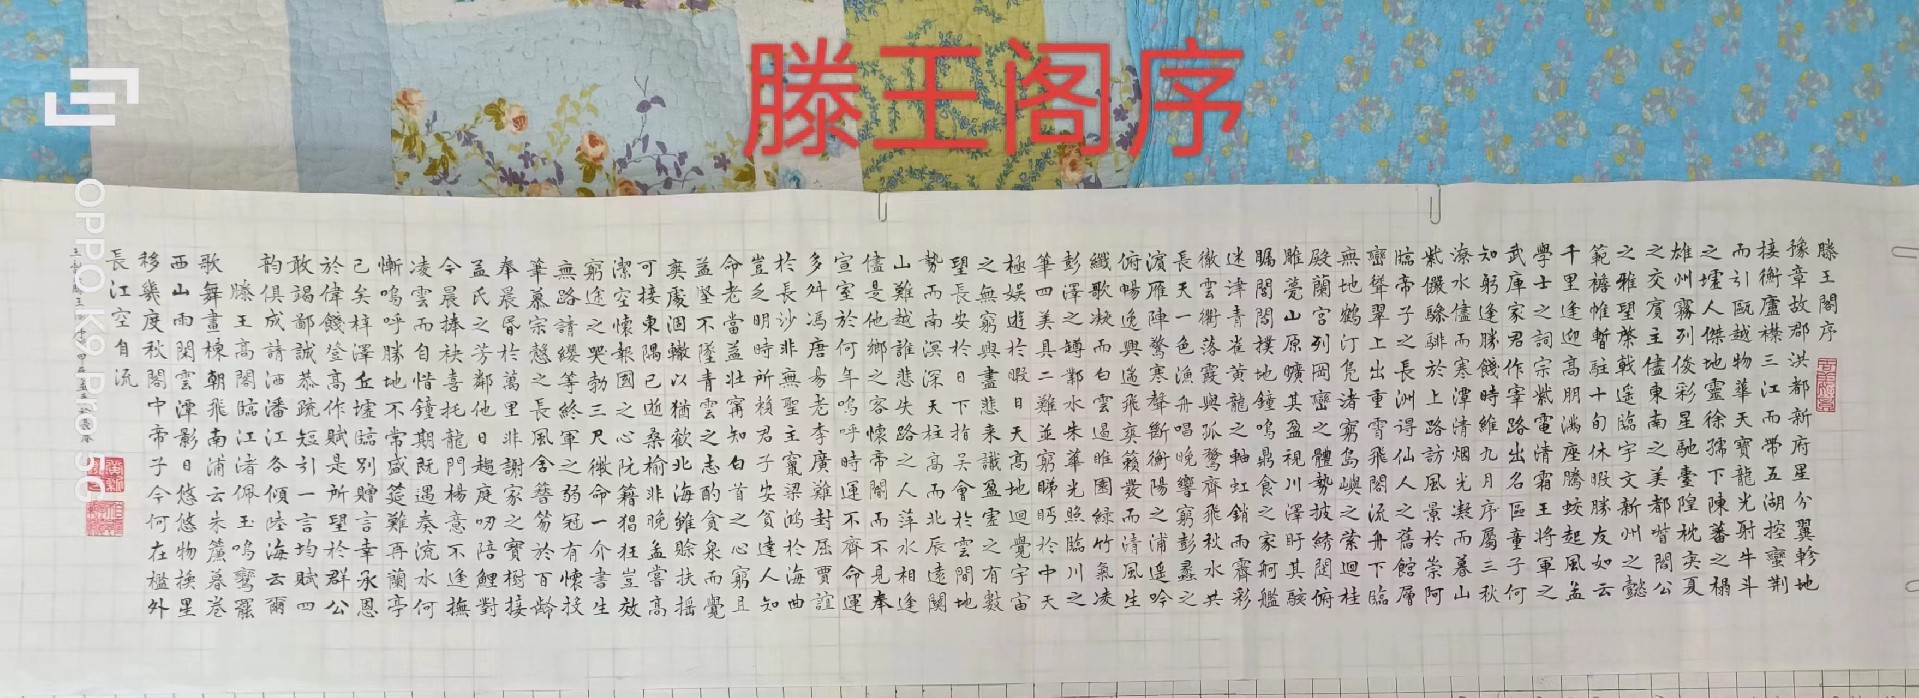 滕王阁序
滕王閣序
豫章故郡洪都新府星分翼軫地
接衡廬襟三江而帶五湖控蠻荊
而引甌越物華天寶龍光射牛斗
之墟人傑地靈徐孺下陳蕃之榻
雄州霧列俊彩星馳臺隍枕夷夏
之交賓主儘東南之美都督閻公
之雅望棨戟遥臨宇文新州之懿
範襜帷暫駐十旬休暇勝友如云
千里逢迎高朋滿座騰蛟起風孟
學士之詞宗紫電清霜王將軍之
武庫家君作宰路出名區童子何
知躬逢勝餞時維九月序屬三秋
潦水儘而寒潭清烟光凝而暮山
紫儼驂騑於上路訪風景於崇阿
臨帝子之長洲得仙人之舊館層
巒聳翠上出重霄飛閣流舟下臨
無地鶴汀凫渚窮島嶼之縈迴桂
殿蘭宮列岡巒之體勢披綉闥俯
雕甍山原曠其盈視川澤盱其駭
矚閭閻撲地鐘鳴鼎食之家舸艦
迷津青雀黃龍之軸虹銷雨霽彩
徹雲衢落霞與孤鶩齊飛秋水共
長天一色漁舟唱晚響窮彭蠡之
濱雁陣驚寒聲斷衡陽之浦遥吟
俯暢逸興遄飛爽籟發而清風生
纖歌凝而白雲遏睢園緑竹氣凌
彭澤之罇鄴水朱華光照臨川之
筆四美具二難並窮睇眄於中天
極娛遊於暇日天高地迴覺宇宙
之無窮興盡悲来識盈虛之有數
望長安於日下指吴會於雲間地
勢而南溟深天柱高而北辰遠關
山難越誰悲失路之人萍水相逢
儘是他鄉之客懷帝閽而不見奉
宣室於何年嗚呼時運不齊命運
多舛馮唐易老李廣難封屈賈誼
於長沙非無聖主竄梁鴻於海曲
豈乏明時所頼君子安貧達人知
命老當益壯甯知白首之心窮且
益堅不墜青雲之志酌貪泉而覺
爽處涸轍以猶歡北海雖賒扶摇
可接東隅已逝桑榆非晚孟嘗高
潔空懷報國之心阮籍猖狂豈效
窮途之哭勃三尺微命一介書生
無路請纓等終軍之弱冠有懷投
筆慕宗慤之長風舍簪笏於百齡
奉晨昏於萬里非謝家之寳樹接
孟氏之芳鄰他日趨庭叨陪鯉對
今晨捧袂喜托龍門楊意不逢撫
凌雲而自惜鐘期既遇奏流水何
慚嗚呼勝地不常盛筵難再蘭亭
已矣梓澤丘墟臨別贈言幸承恩
於偉餞登高作賦是所望於群公
敢竭鄙誠恭疏短引一言均賦四
韵俱成請洒潘江各傾陸海云爾
滕王高閣臨江渚佩玉鳴鸞罷
歌舞畫棟朝飛南浦云朱簾暮卷
西山雨閑雲潭影日悠悠物換星
移幾度秋閣中帝子今何在檻外
長江空自流
OPPO K9 Pro 5G